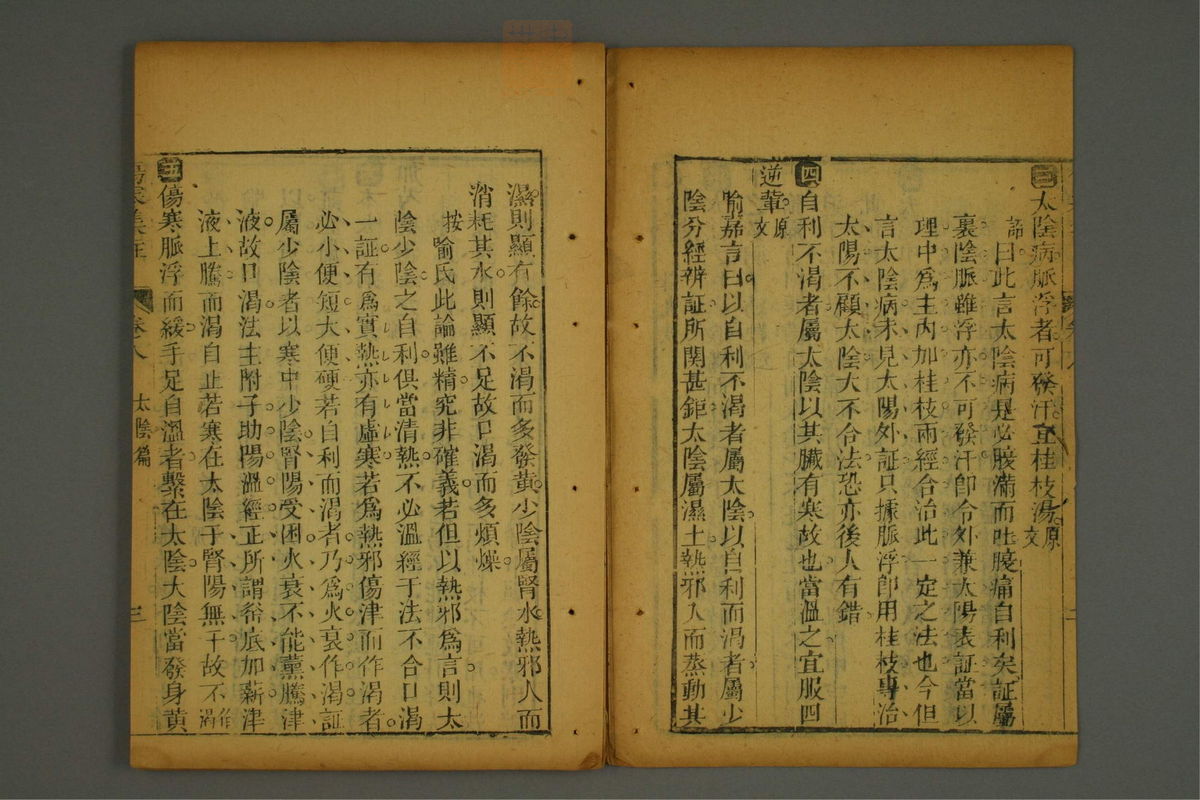 三太陰病脈浮者可發汗宜桂枝湯原文
曰此言太陰病是必腹滿而吐腹痛自利矣証屬
裏陰脈雖浮亦不可發汗卽令外兼太陽表証當以
理中爲主內加桂枝兩經合治此一定之法也今但
言太陰病未見太陽外証只據脈浮卽用桂枝專治
太陽不顧太陰大不合法恐亦後人有錯
四自利不渴者屬太陰以其臟有寒故也當溫之宜服四
逆輩原文
喻嘉言曰以自利不渴者屬太陰以自利而渴者屬少
陰分經辨証所関甚鉅太陰屬濕土熱邪入而蒸動其
濕則顯有餘故不渴而多發黃少陰屬腎水熱邪入而
消耗其水則顯不足故口渴而多煩燥
按喻氏此論雖精究非確義若但以熱邪爲言則太
陰少陰之自利俱當清熱不必溫經于法不合口渴
一証有爲實熱亦有虛寒若爲熱邪傷津而作渴者
必小便短大便硬若自利而渴者乃爲火衰作渴証
屬少陰者以寒中少陰腎陽受困火衰不能薰騰津
液故口渴法主附子助陽溫經正所謂釜底加薪津
液上騰而渴自止若寒在太陰于腎陽無干故不作渴
五傷寒脈浮而緩手足自溫者繫在太陰太陰當發身黃
卷八
太陰篇
三